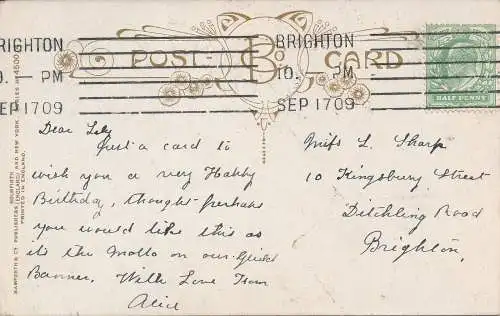 BRIGHTON
BRIGHTON
POST-CARD
10. - PM
SEP 17 09
SEP 17 09
HALF PENNY
BAMFORTH & CO. PUBLISHERS (ENGLAND) AND NEW YORK.
HOLMFIRTH
PRINTED IN ENGLAND.
Dear Lily
Just a card to
wish you a very Happy
Birthday, thought perhaps
you would like this as
it's the Motto on our Guild
Banner. With Love from
Alice
Miss L. Sharp
10 Kingsbury Street
Ditchling Road
Brighton,